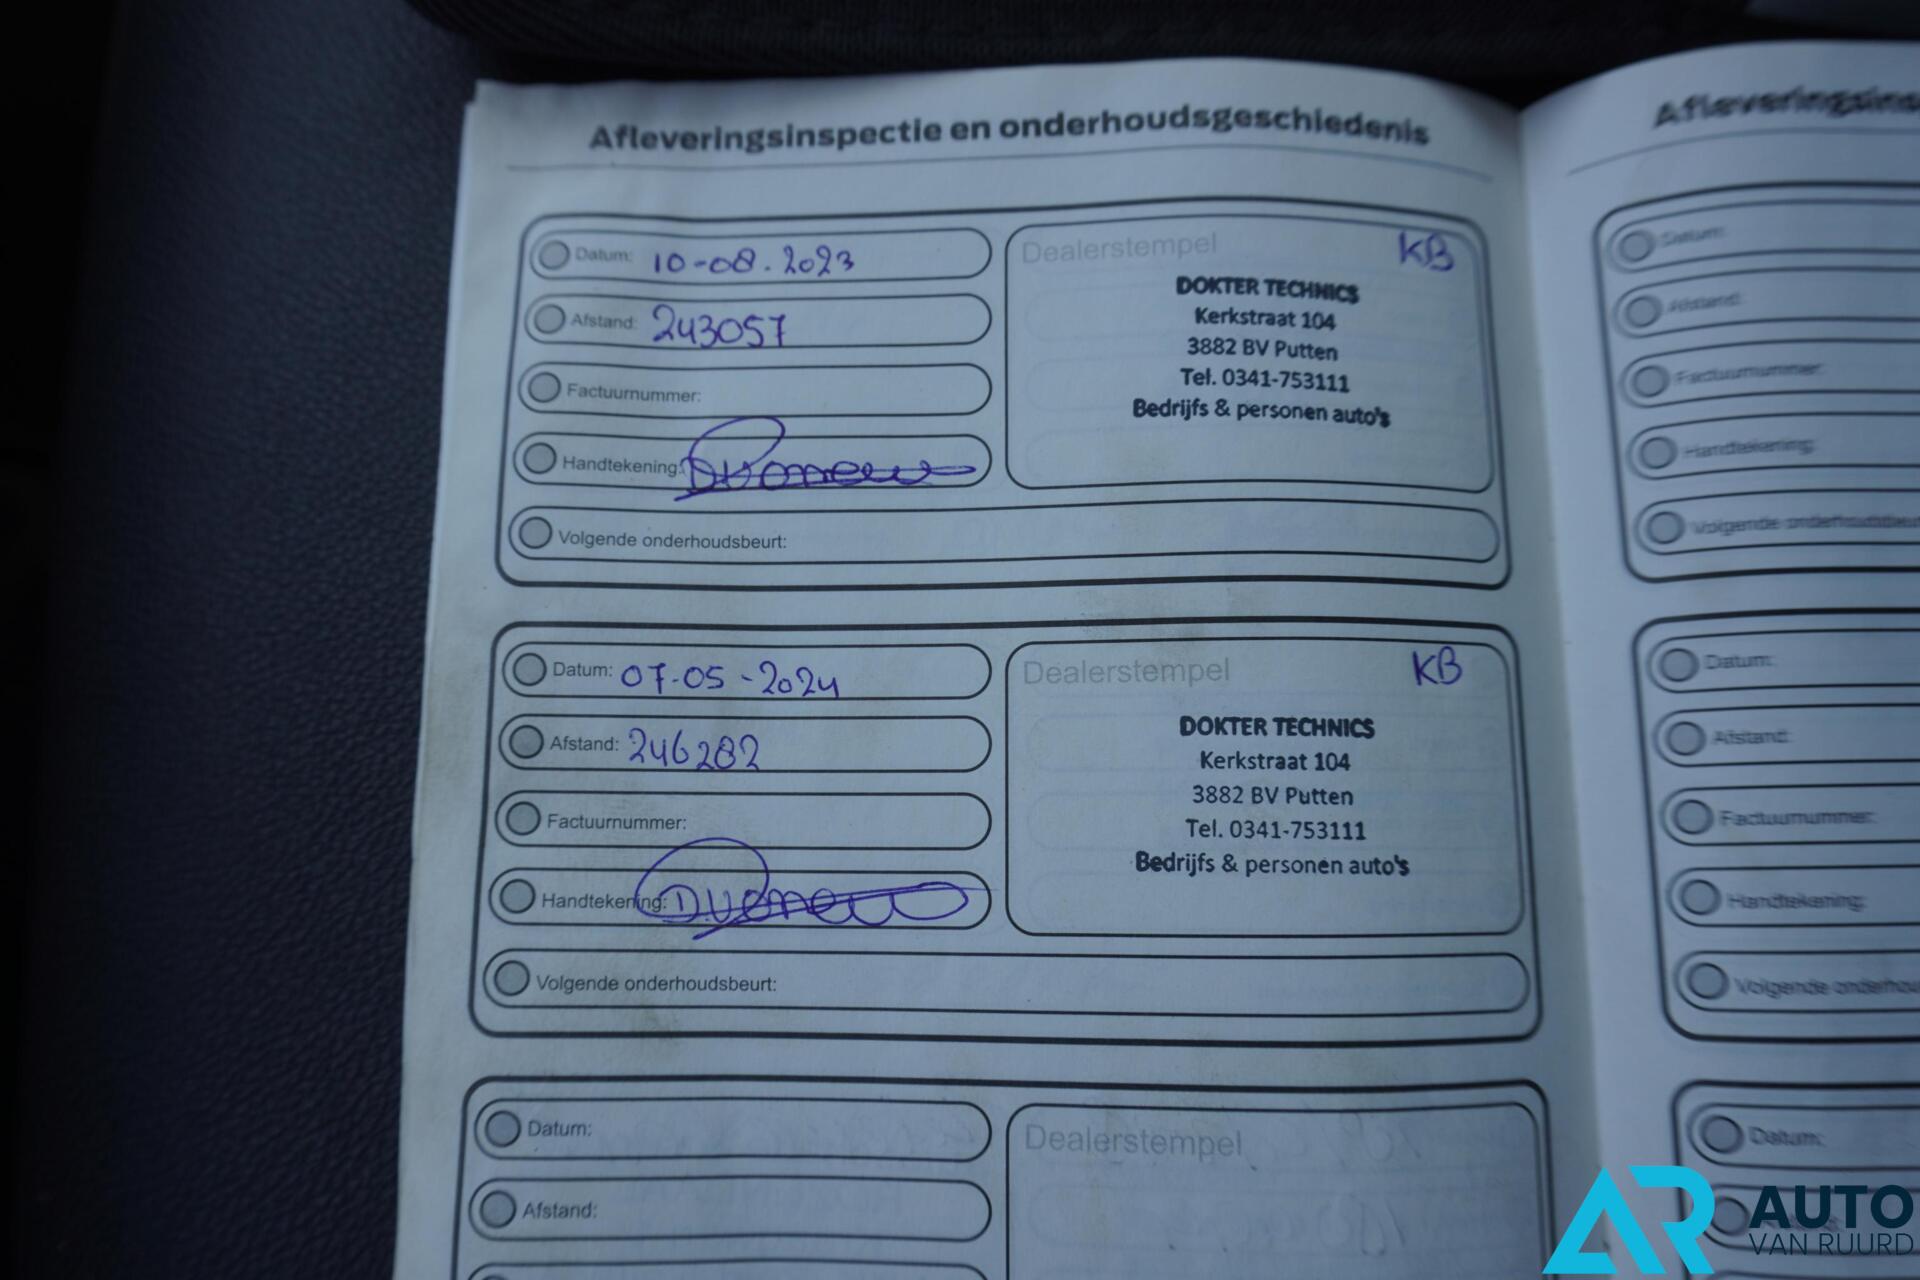 Afleveringsinspectie en onderhoudsgeschiedenis
Datum: 10-08-2023
Afstand: 243057
Factuurnummer:
Handtekening:
Volgende onderhoudsbeurt:
Dealerstempel KB
DOKTER TECHNICS
Kerkstraat 104
3882 BV Putten
Tel. 0341-753111
Bedrijfs & personen auto's
Datum: 07-05-2024
Afstand: 246282
Factuurnummer:
Handtekening:
Volgende onderhoudsbeurt:
Dealerstempel KB
DOKTER TECHNICS
Kerkstraat 104
3882 BV Putten
Tel. 0341-753111
Bedrijfs & personen auto's
Datum:
Afstand:
Dealerstempel
Datum:
Afstand:
Factuurnummer:
Handtekening:
Volgende
Datum:
Afstand:
Factuurnummer:
Handtekening:
Volgende
Datum:
AR AUTO
VAN RUURD